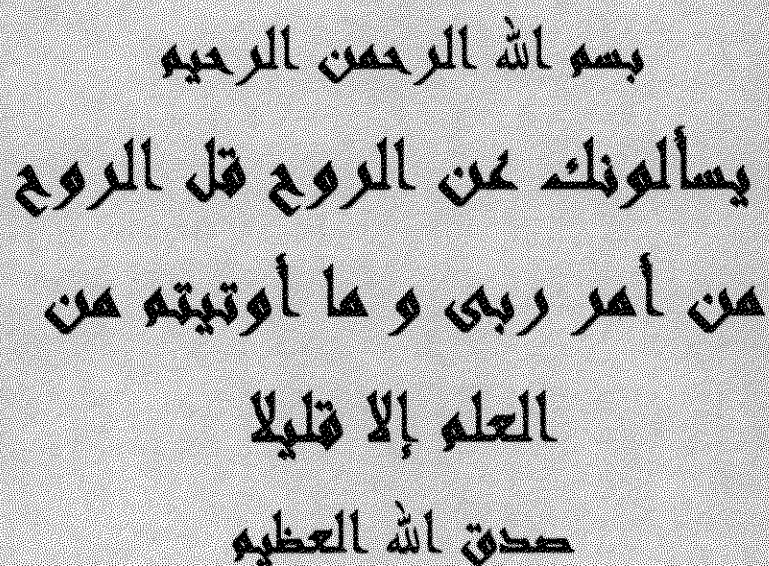 بسم الله الرحمن الرحيم
يسألونك عن الروح قل الروح
من أمر ربى و ما أوتيتم من
العلم إلا قليلا
صدق الله العظيم